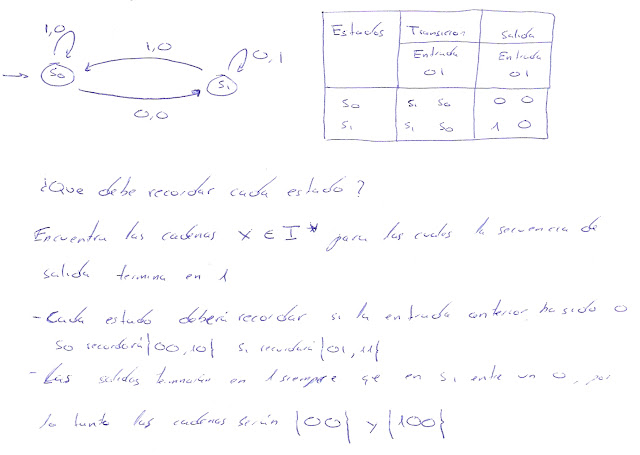 1,0
1,0
0,1
S0
S1
0,0
Estados Transicion Salida
Entrada Entrada
0 1 0 1
S0 S1 S0 0 0
S1 S1 S0 1 0
¿Que debe recordar cada estado?
Encuentra las cadenas X ∈ I* para las cuales la secuencia de
salida termina en 1
- Cada estado deberá recordar si la entrada anterior ha sido 0
S0 recordará {00,10} S1 recordará {01,11}
- Las salidas terminarán en 1 siempre qe en S1 entre un 0, por
lo tanto las cadenas serán {00} y {100}